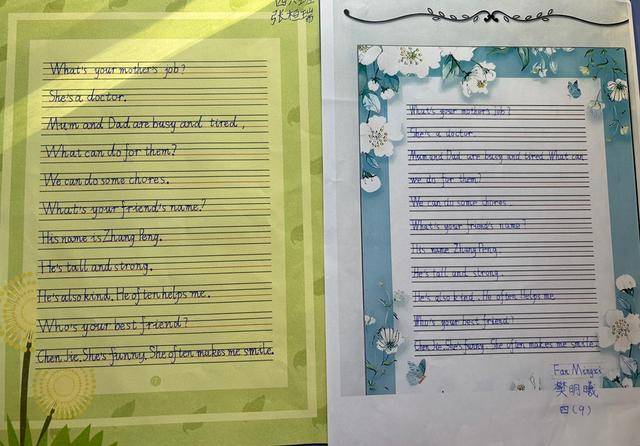 张桓瑞
What's your mother's job?
She's a doctor.
Mum and Dad are busy and tired,
What can do for them?
We can do some chores.
What's your friend's name?
His name is Zhang Peng.
He's tall and strong.
He's also kind. He often helps me.
Who's your best friend?
Chen Jie. She's funny. She often makes me smile.
What's your mother's job?
She's a doctor.
Mum and Dad are busy and tired. What can
we do for them?
We can do some chores.
What's your friend's name?
His name Zhang Peng.
He's tall and strong.
He's also kind. He often Helps me
Who's your best friend?
Chen Jie. She's funny. She often makes me smile.
Fan Mingxi
樊明曦
四(9)